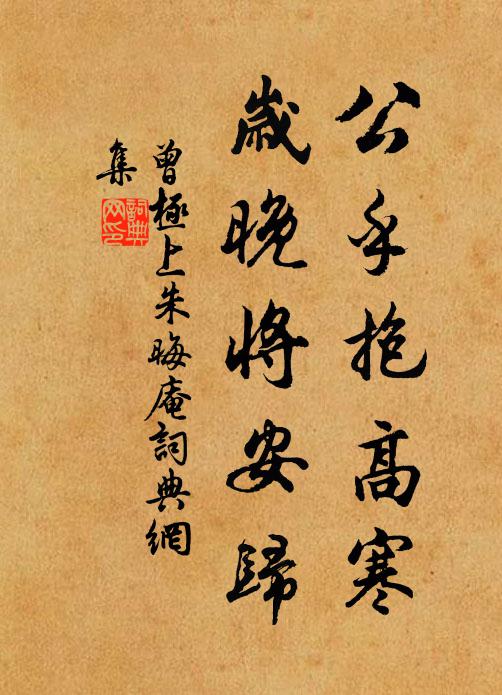 公乎抱高寒
歲晚將安歸
曾極上朱晦庵詞典網
集
詞典
网印